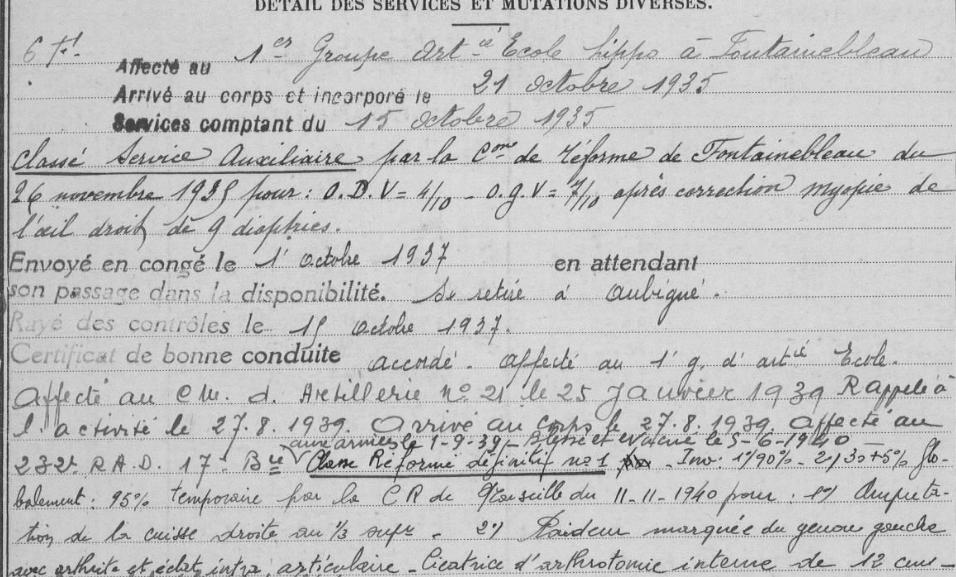 DÉTAIL DES SERVICES ET MUTATIONS DIVERSES.
Affecté au 1er Groupe Artie École hippo à Fontainebleau
Arrivé au corps et incorporé le 21 octobre 1935
Services comptant du 15 octobre 1935
Classé Service Auxiliaire par la Cme de réforme de Fontainebleau du
26 novembre 1935 pour : O.D.V = 4/10 - O.g.V = 7/10 après correction myopie de
l'œil droit de 9 dioptries.
Envoyé en congé le 1r octobre 1937 en attendant
son passage dans la disponibilité. Se retire à Aubigné.
Rayé des contrôles le 15 octobre 1937.
Certificat de bonne conduite accordé. Affecté au 1r g. d'artie École.
Affecté au C.M. d. Artillerie No 21 le 25 Janvier 1939 Rappelé à
l'activité le 27.8.1939. Arrivé au corps le 27.8.1939. Affecté au
aux armées le 1-9-39 - Blessé et évacué le 5-6-1940 -
232e R.A.D. 17e Bie Classé Réformé définitif no 1 - Inv : 1°/90% - 2°/30+5% Glo-
balement : 95% temporaire par la CR de Marseille du 11-11-1940 pour : 1°/ Amputa-
tion de la cuisse droite au 1/3 supr - 2°/ Raideur marquée du genou gauche
avec arthrite et éclat intra articulaire - Cicatrice d'arthrotomie interne de 12 cm -